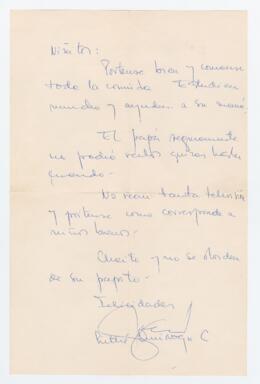 Niñitos:
Portense bien y comanse
toda la comida Estudien
mucho y ayuden a su mamá.
El papá seguramente
no podrá verlos quizas hasta
cuando.
No vean tanta televisión
y portense como corresponde a
niños buenos.
Chaito y no se olviden
de su papito.
Felicidades